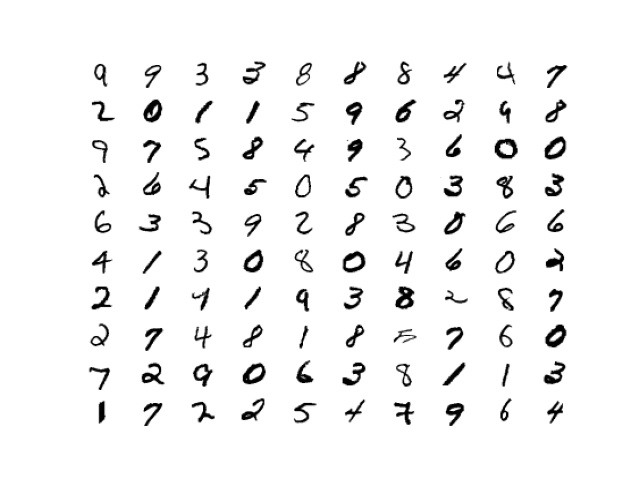 9 9 3 3 8 8 8 4 4 7
2 0 1 1 5 9 6 2 9 8
9 7 5 8 4 9 3 6 0 0
2 6 4 5 0 5 0 3 8 3
6 3 3 9 2 8 3 0 6 6
4 1 3 0 8 0 4 6 0 2
2 1 4 1 9 3 8 2 8 7
2 7 4 8 1 8 5 7 6 0
7 2 9 0 6 3 8 1 1 3
1 7 2 2 5 4 7 9 6 4